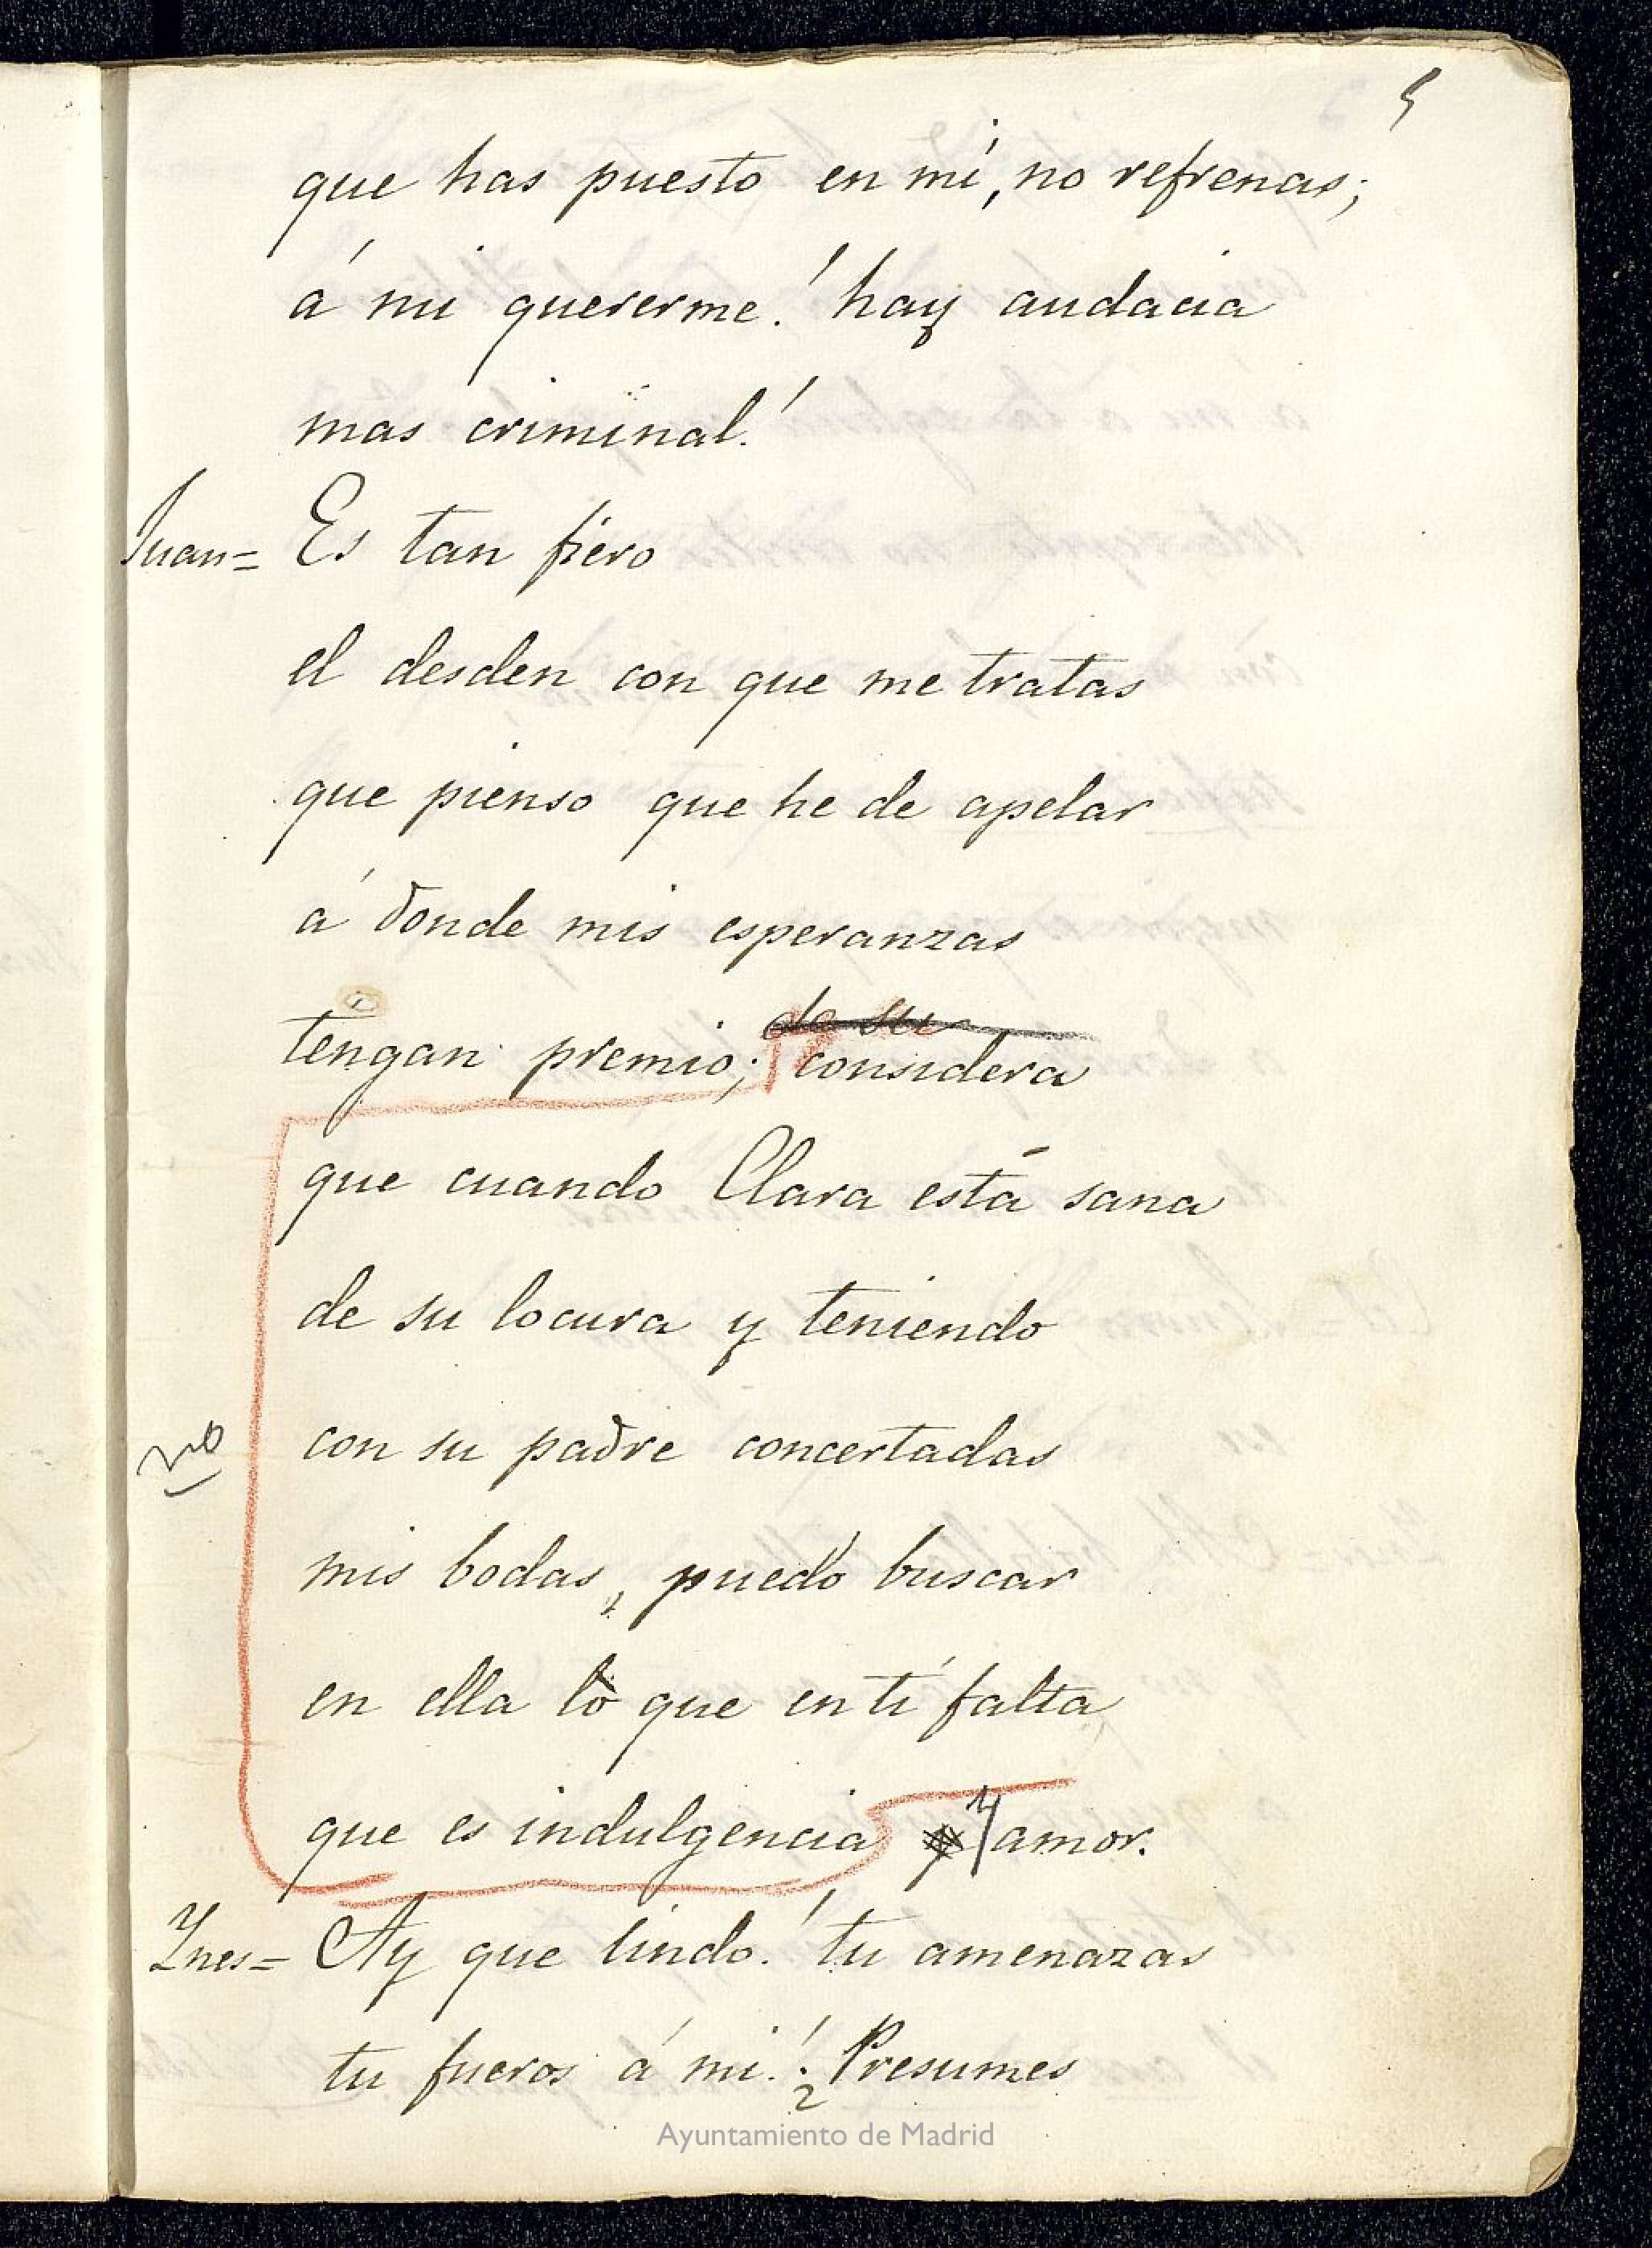 5
que has puesto en mí, no refrenas;
á mi quererme! hay audacia
mas criminal!
Juan= Es tan fiero
el desden con que me tratas
que pienso que he de apelar
á donde mis esperanzas
de su
tengan premio; considera
que cuando Clara está sana
de su locura y teniendo
no
con su padre concertadas
mis bodas, puedo buscar
en ella lo que en tí falta
que es indulgencia y amor.
Ynes= Ay que lindo! tu amenazas
tu fueros á mi! ¿Presumes
Ayuntamiento de Madrid